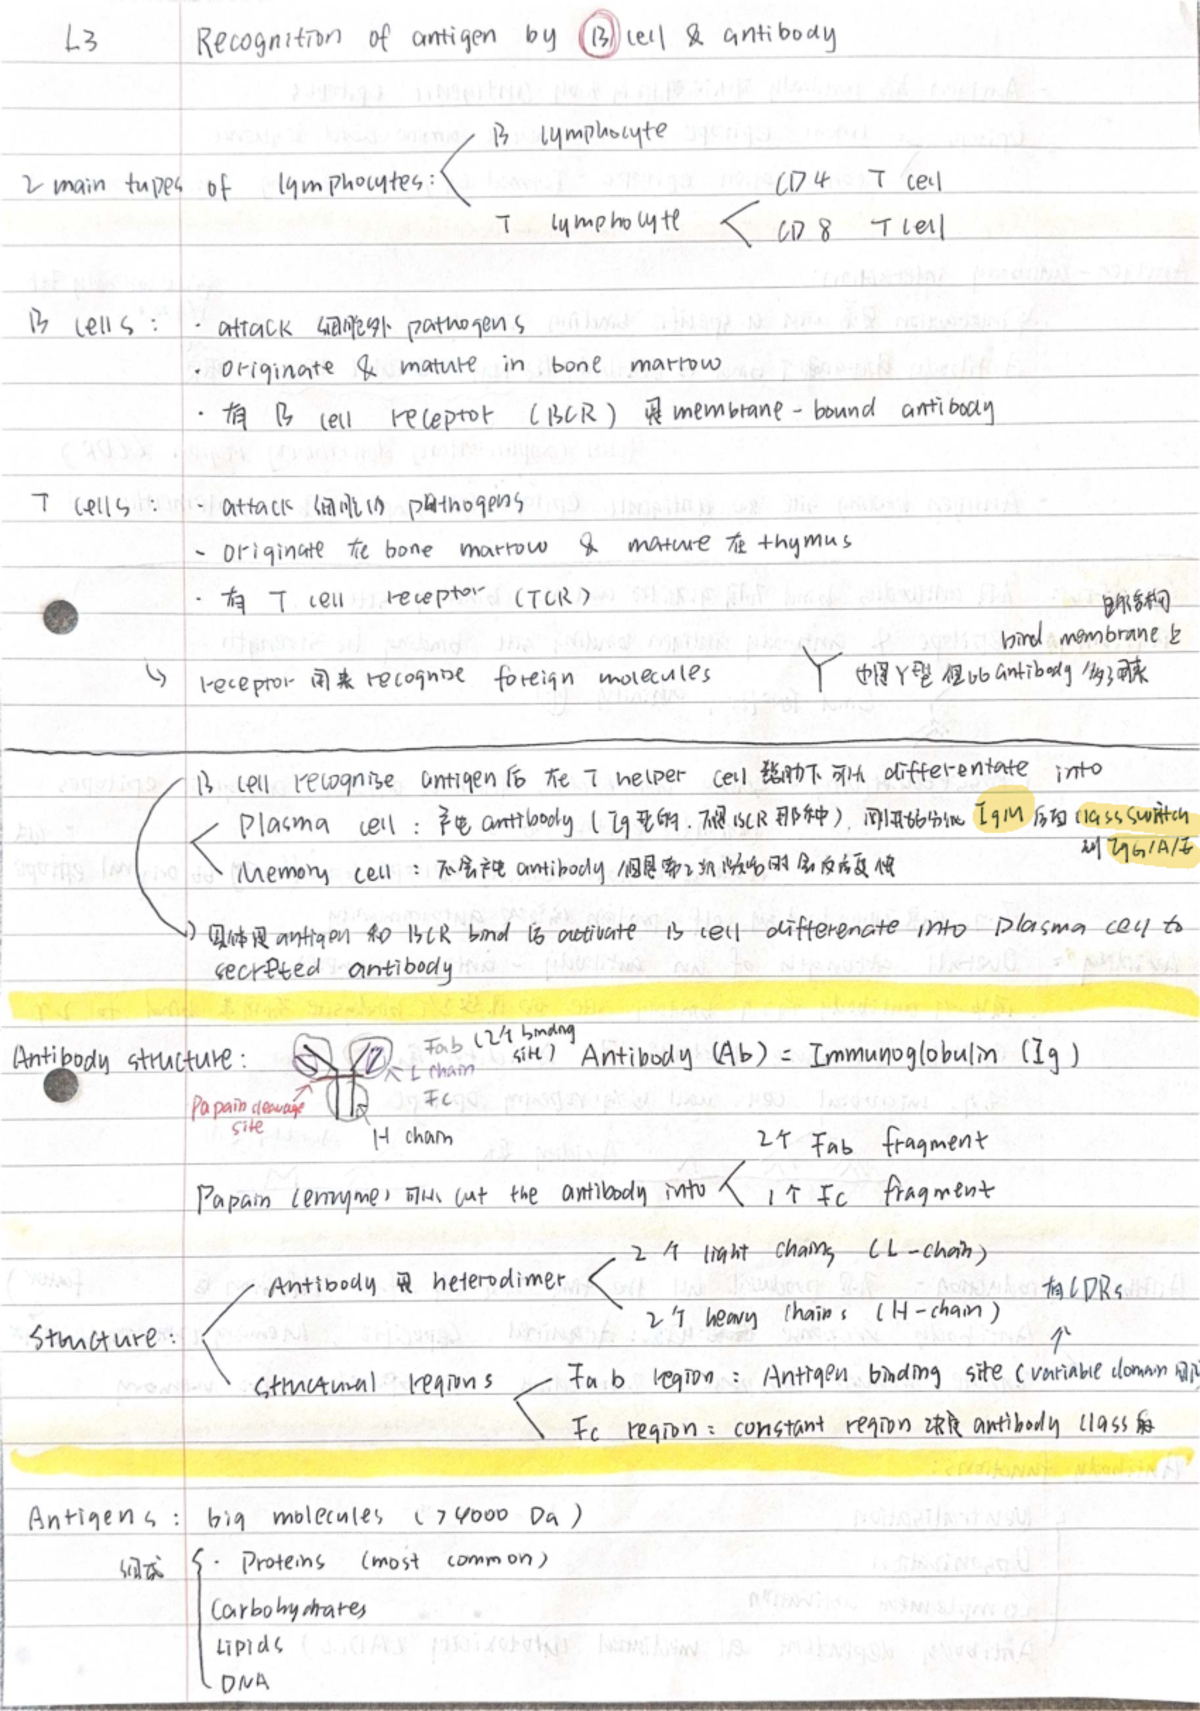 L3 Recognition of antigen by B cell & antibody
2 main types of lymphocytes:
B lymphocyte
T lymphocyte
CD4 T cell
CD8 T cell
B cells: · attack 细胞外 pathogens
· originate & mature in bone marrow
· 有 B cell receptor (BCR) 是 membrane-bound antibody
T cells: · attack 细胞内 pathogens
- originate 在 bone marrow & mature 在 thymus
· 有 T cell receptor (TCR)
bind membrane 上
↳ receptor 用来 recognise foreign molecules
也是Y型 但比 antibody
B cell recognise antigen 后 在 T helper cell 帮助下 可以 differentate into
Plasma cell: 产生 antibody (Ig 那种, 不是 BCR 那种), 刚开始分泌 IgM 后面 class switch
到 IgG/A/E
Memory cell: 不会产生 antibody 但是第2次
具体是 antigen 和 BCR bind 后 activate B cell differenate into plasma cell to
secreted antibody
Antibody structure:
Fab (2个 binding site)
L chain
Fc
H chain
Papain cleavage site
Antibody (Ab) = Immunoglobulin (Ig)
Papain (enzyme) 可以 cut the antibody into
2个 Fab fragment
1个 Fc fragment
Structure:
Antibody 是 heterodimer
2个 light chains (L-chain)
2个 heavy chains (H-chain)
有 CDRs
structural regions
Fab region: Antigen binding site (variable domain
Fc region: constant region 决定 antibody class
Antigens: big molecules (>4000 Da)
组成
· Proteins (most common)
Carbohydrates
Lipids
DNA